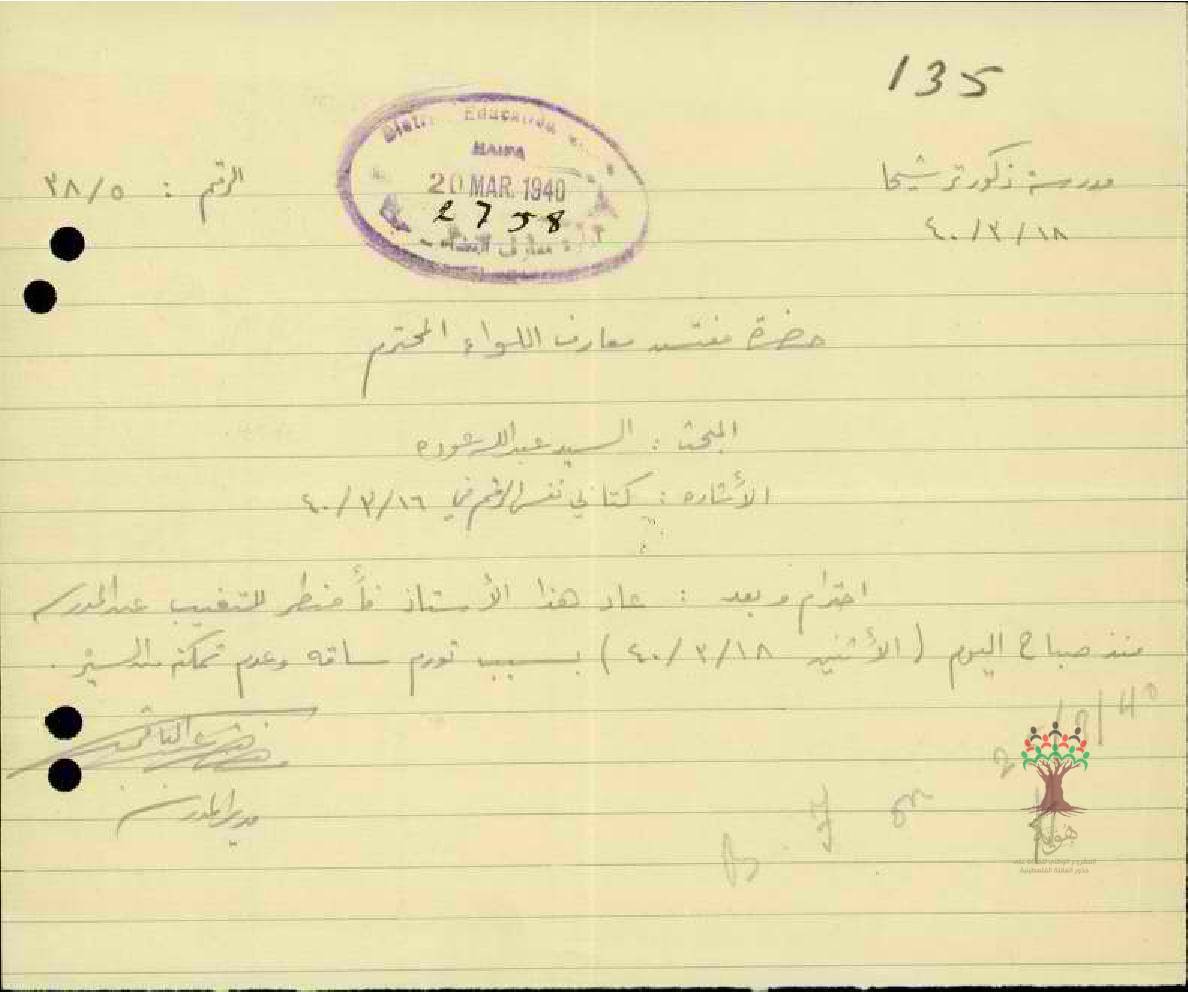 135
مدرسة ذكور ترشيحا
الرقم : ٣٨/٥
District Education
HAIFA
20 MAR. 1940
2758
معارف اللواء
٤٠/٣/١٨
حضرة مفتش معارف اللواء المحترم
المبحث : السيد عبدالله عوده
الأشاره : كتابي نفس الرقم في ٤٠/٣/١٦
احترام وبعد : عاد هذا الأستاذ فأضطر للتغيب عن المدرسة
منذ صباح اليوم (الأثنين ٤٠/٣/١٨) بسبب تورم ساقه وعدم تمكنه من السير .
مدير المدرسة
هوية
المشروع الوطني للحفاظ على
جذور العائلة الفلسطينية